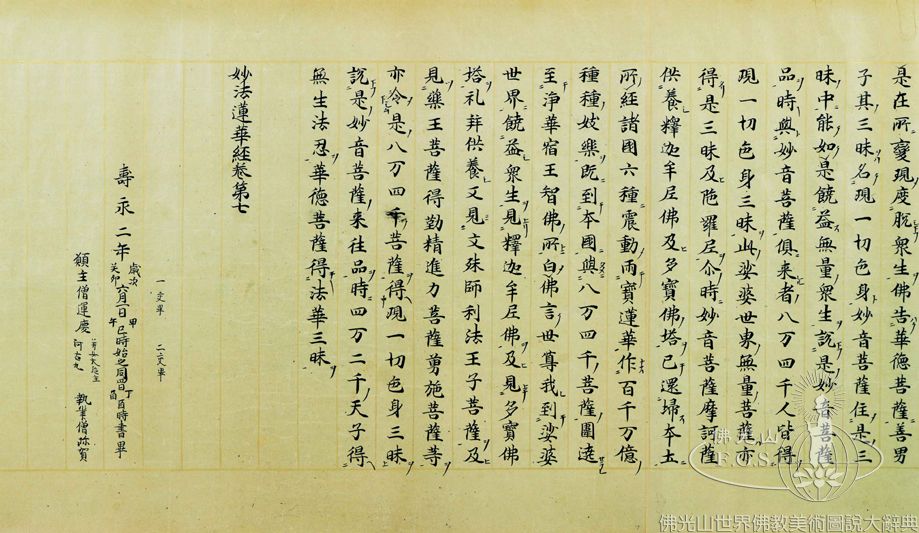 是在所變現度脫衆生佛告華德菩薩善男
子其三昧名現一切色身妙音菩薩住是三
昧中能如是饒益無量衆生說是妙音菩薩
品時與妙音菩薩俱来者八万四千人皆得
現一切色身三昧此娑婆世界無量菩薩亦
得是三昧及陁羅尼尒時妙音菩薩摩訶薩
供養釋迦牟尼佛及多寶佛塔已還歸本土
所經諸國六種震動雨寶蓮華作百千万億
種種妓樂既到本國與八万四千菩薩圍遶
至淨華宿王智佛所白佛言世尊我到娑婆
世界饒益衆生見釋迦牟尼佛及見多寶佛
塔礼拜供養又見文殊師利法王子菩薩及
見藥王菩薩得勤精進力菩薩勇施菩薩等
亦令是八万四千菩薩得現一切色身三昧
說是妙音菩薩来往品時四万二千天子得
無生法忍華德菩薩得法華三昧
妙法蓮華經卷第七
一交畢 二交畢
壽永二年歲次癸卯六月一日甲午巳時始之同四日丁酉酉時書畢
願主僧運慶 女大施主 阿古丸 執筆僧珎賀
佛光山
F.G.S.
佛光山世界佛教美術圖說大辭典